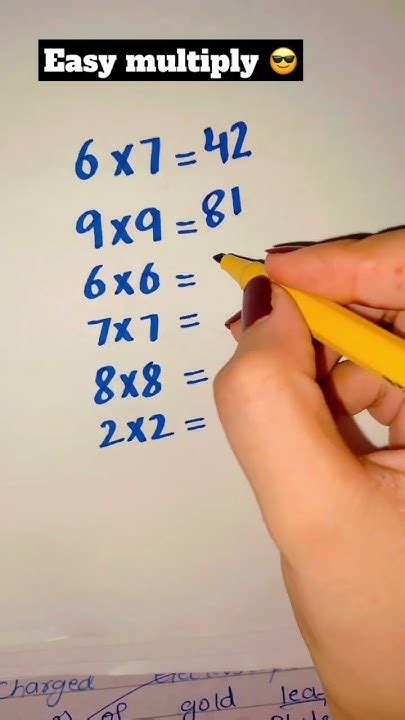 Easy multiply 😎
6x7=42
9x9=81
6x6=
7x7=
8x8=
2x2=
Charged
of gold lea